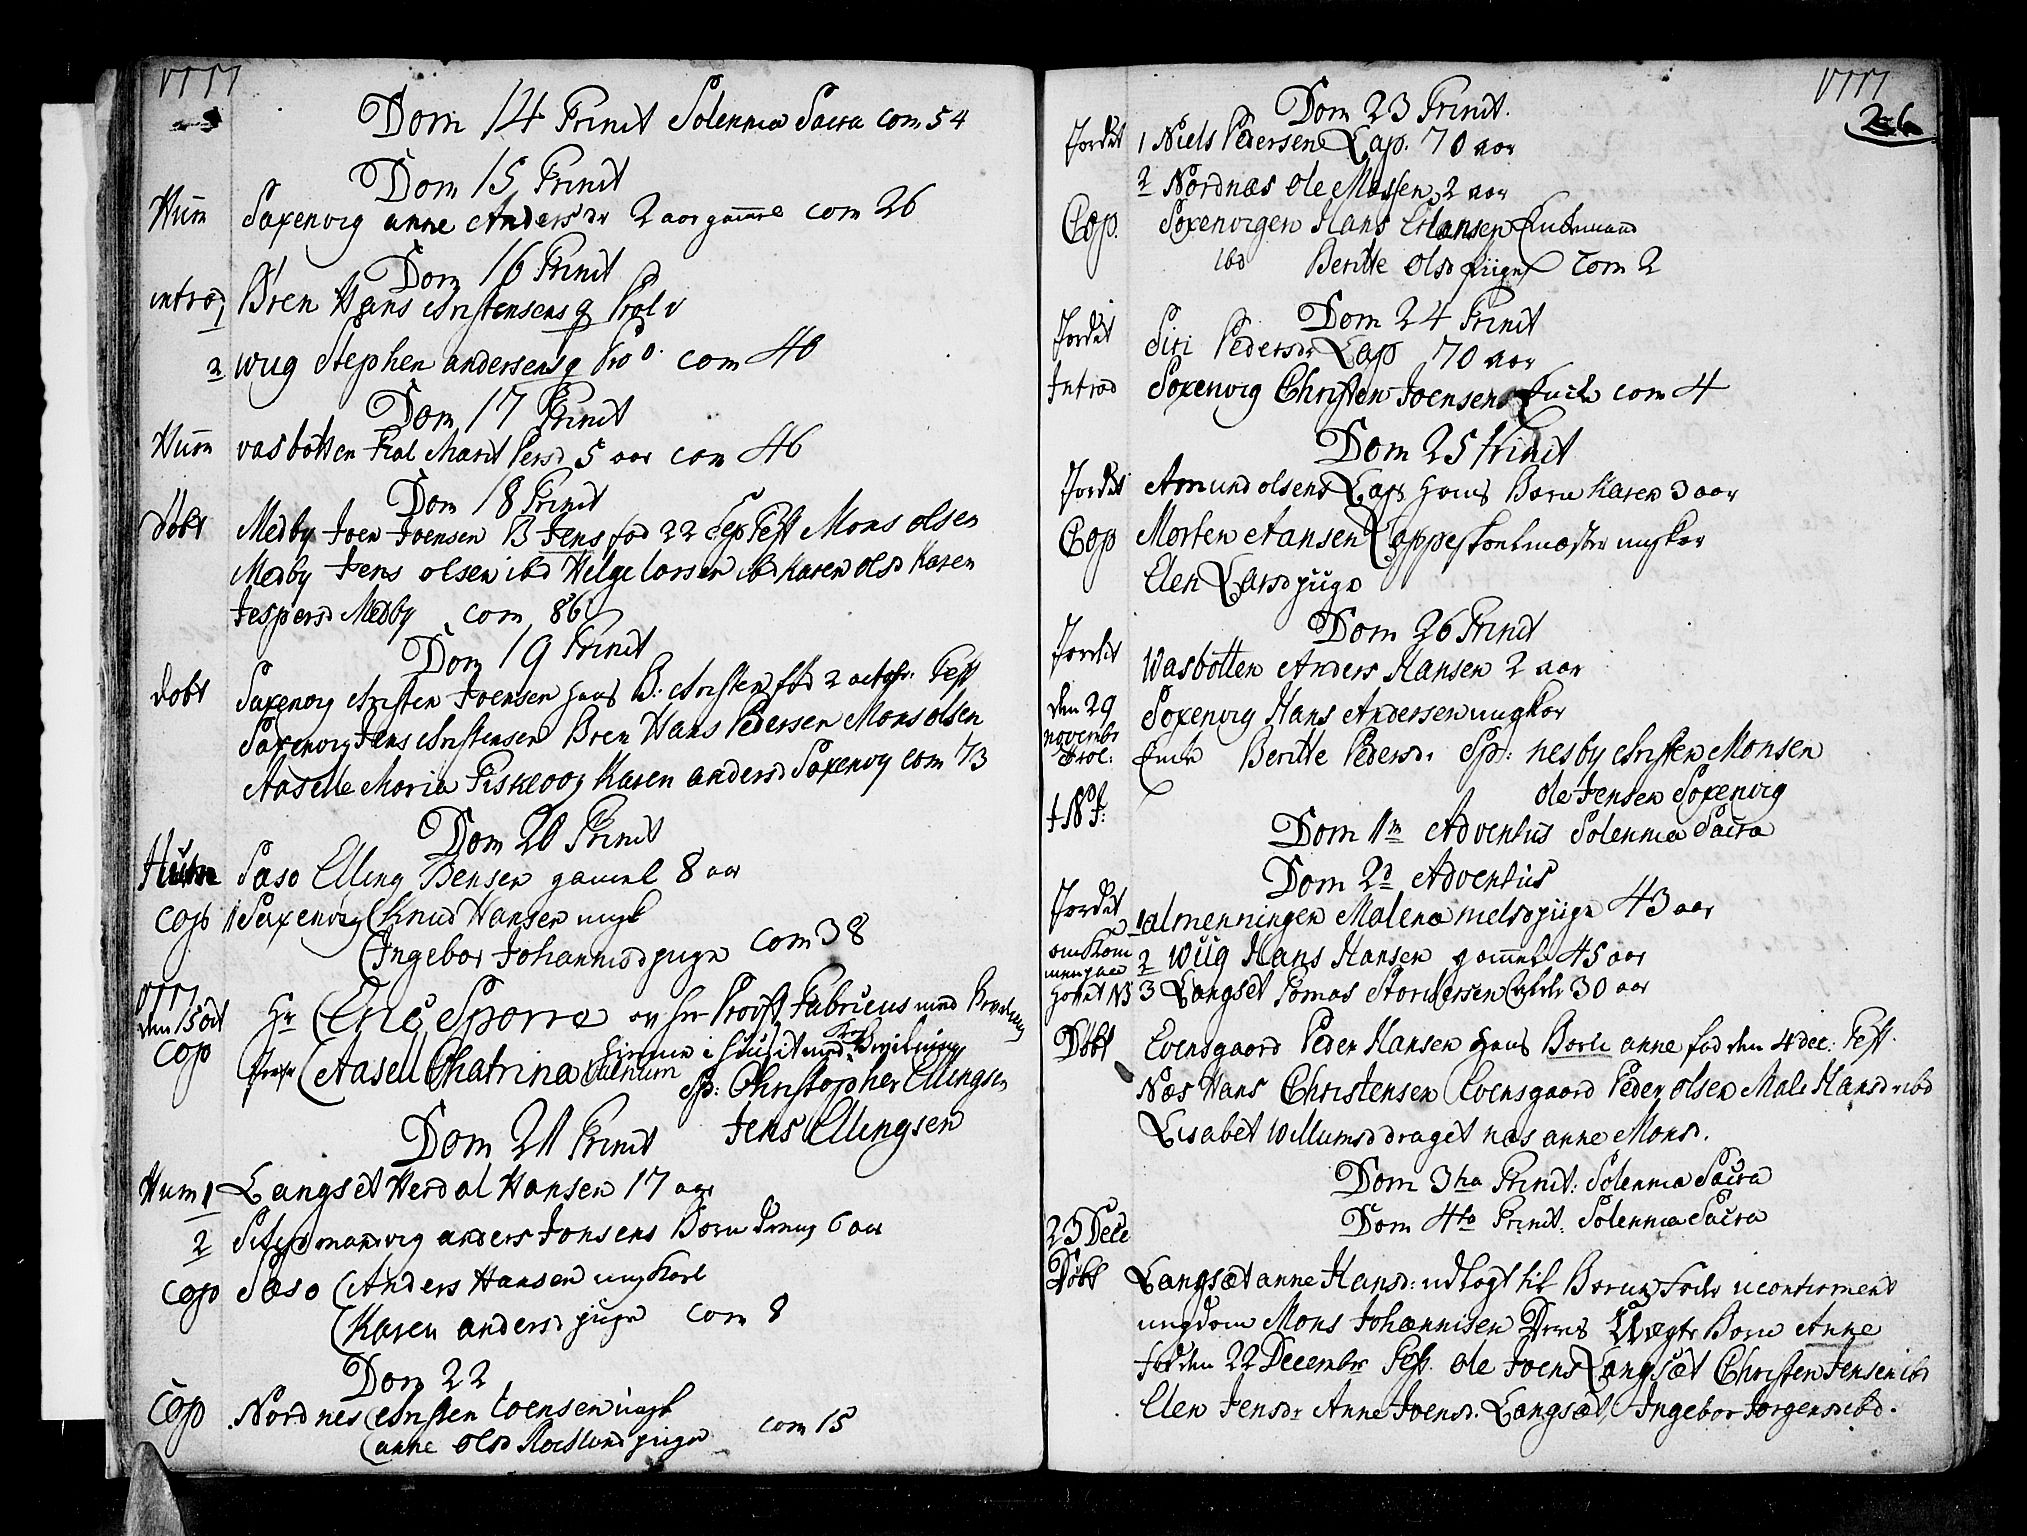 1777
Dom 14 Trinit Solennia Sacra com 54
Dom 15 Trinit
Hum Saxenvig anne Andersdr 2 aar gammel com 26
Dom 16 Trinit
introd 1 Bren Hans Christensens q
2 wug Stephen andersens q com 40
Dom 17 Trinit
Hum vasbotten Marit Persd 5 aar com 46
Dom 18 Trinit
Døbt Medby Joen Joensen B Jens fød 22 Sep Test Mons olsen
Medby Jens olsen ibd Helge larsen ibd Karen olsd Karen
Jespersd Medby com 86
Dom 19 Trinit
døbt Saxenvig Christen Joensen hans B: Christen fød 2 octobr. Test
Saxenvig Jens Christensen Bren Hans Pedersen Mons olsen
Aaselle Maria Fiskevog Karen andersd Saxenvig com 73
Dom 20 Trinit
Hum Saso Elling Bensen gamel 8 aar
cop 1 Saxenvig Knud Hansen ungk
Ingebor Johannisd pige com 38
1777
den 15 oct Hr Eric Sporre Provst Fabricius med
cop Aasell Chatrina
Sp: Christopher Ellingsen
Dom 21 Trinit Jens Ellingsen
Hum 1 Langset Herdal Hansen 17 aar
2 anders Jonsens Barn 6 aar
cop Saso Anders Hansen ungkarl
Karen andersd pige com 8
Dom 22
Cop Nordnes Christen Coensen ungk
anne olsd pige com 15
1777
26
Dom 23 Trinit.
Jordet 1 Niels Pedersen Lap. 70 aar
2 Nordnæs Ole 2 aar
Cop. Soxenvigen Hans Hansen Enkemand
ibd Beritte olsd piige com 2
Dom 24 Trinit
Jordet Siri Pedersdr Lap 70 aar
Introd Soxenvig Christen Joensens com 4
Dom 25 Trinit
Jordet Amund olsens Lap hans Barn Karen 3 aar
Cop Morten Aansen Lappeskoelmester ungkar
Elen Larsd piige
Dom 26 Trinit
Jordet Wasbotten Anders Hansen 2 aar
den 29 Soxenvig Hans Andersen ungkar
novembr
Trol: Enke Beritte Pedersd. Sp: nesby Christen Monsen
ole Jensen Soxenvig
J N J:
Dom 1m Adventus Solennia Sacra
Dom 2d Adventus
Jordet 1 almenningen Malena nielsd piige 43 aar
2 Wug Hans Hansen gammel 45 aar
3 Langset Tomas 30 aar
Døbt Evensgaard Peder Hansen hans Barn anne fød den 4 dec: Test.
Næs Hans Christensen Evensgaard Peder olsen Male Hansdr ibd
Lisabet Willumsd draget næs anne Monsd.
Dom 3tia Trinit: Solennia Sacra
Dom 4to Trinit: Solennia Sacra
23 Dece
Døbt Langsæt anne Hansd: udlagt til Barne Fader uconfirmeret
ungdom Mons Johannisen Barn Anne
fød den 22 Decembr Test. Ole Joens Langsæt Christen Jensen ibd
Elen Jensdr Anne Joensd. Langsæt, Ingebor Jorgensd ibd.